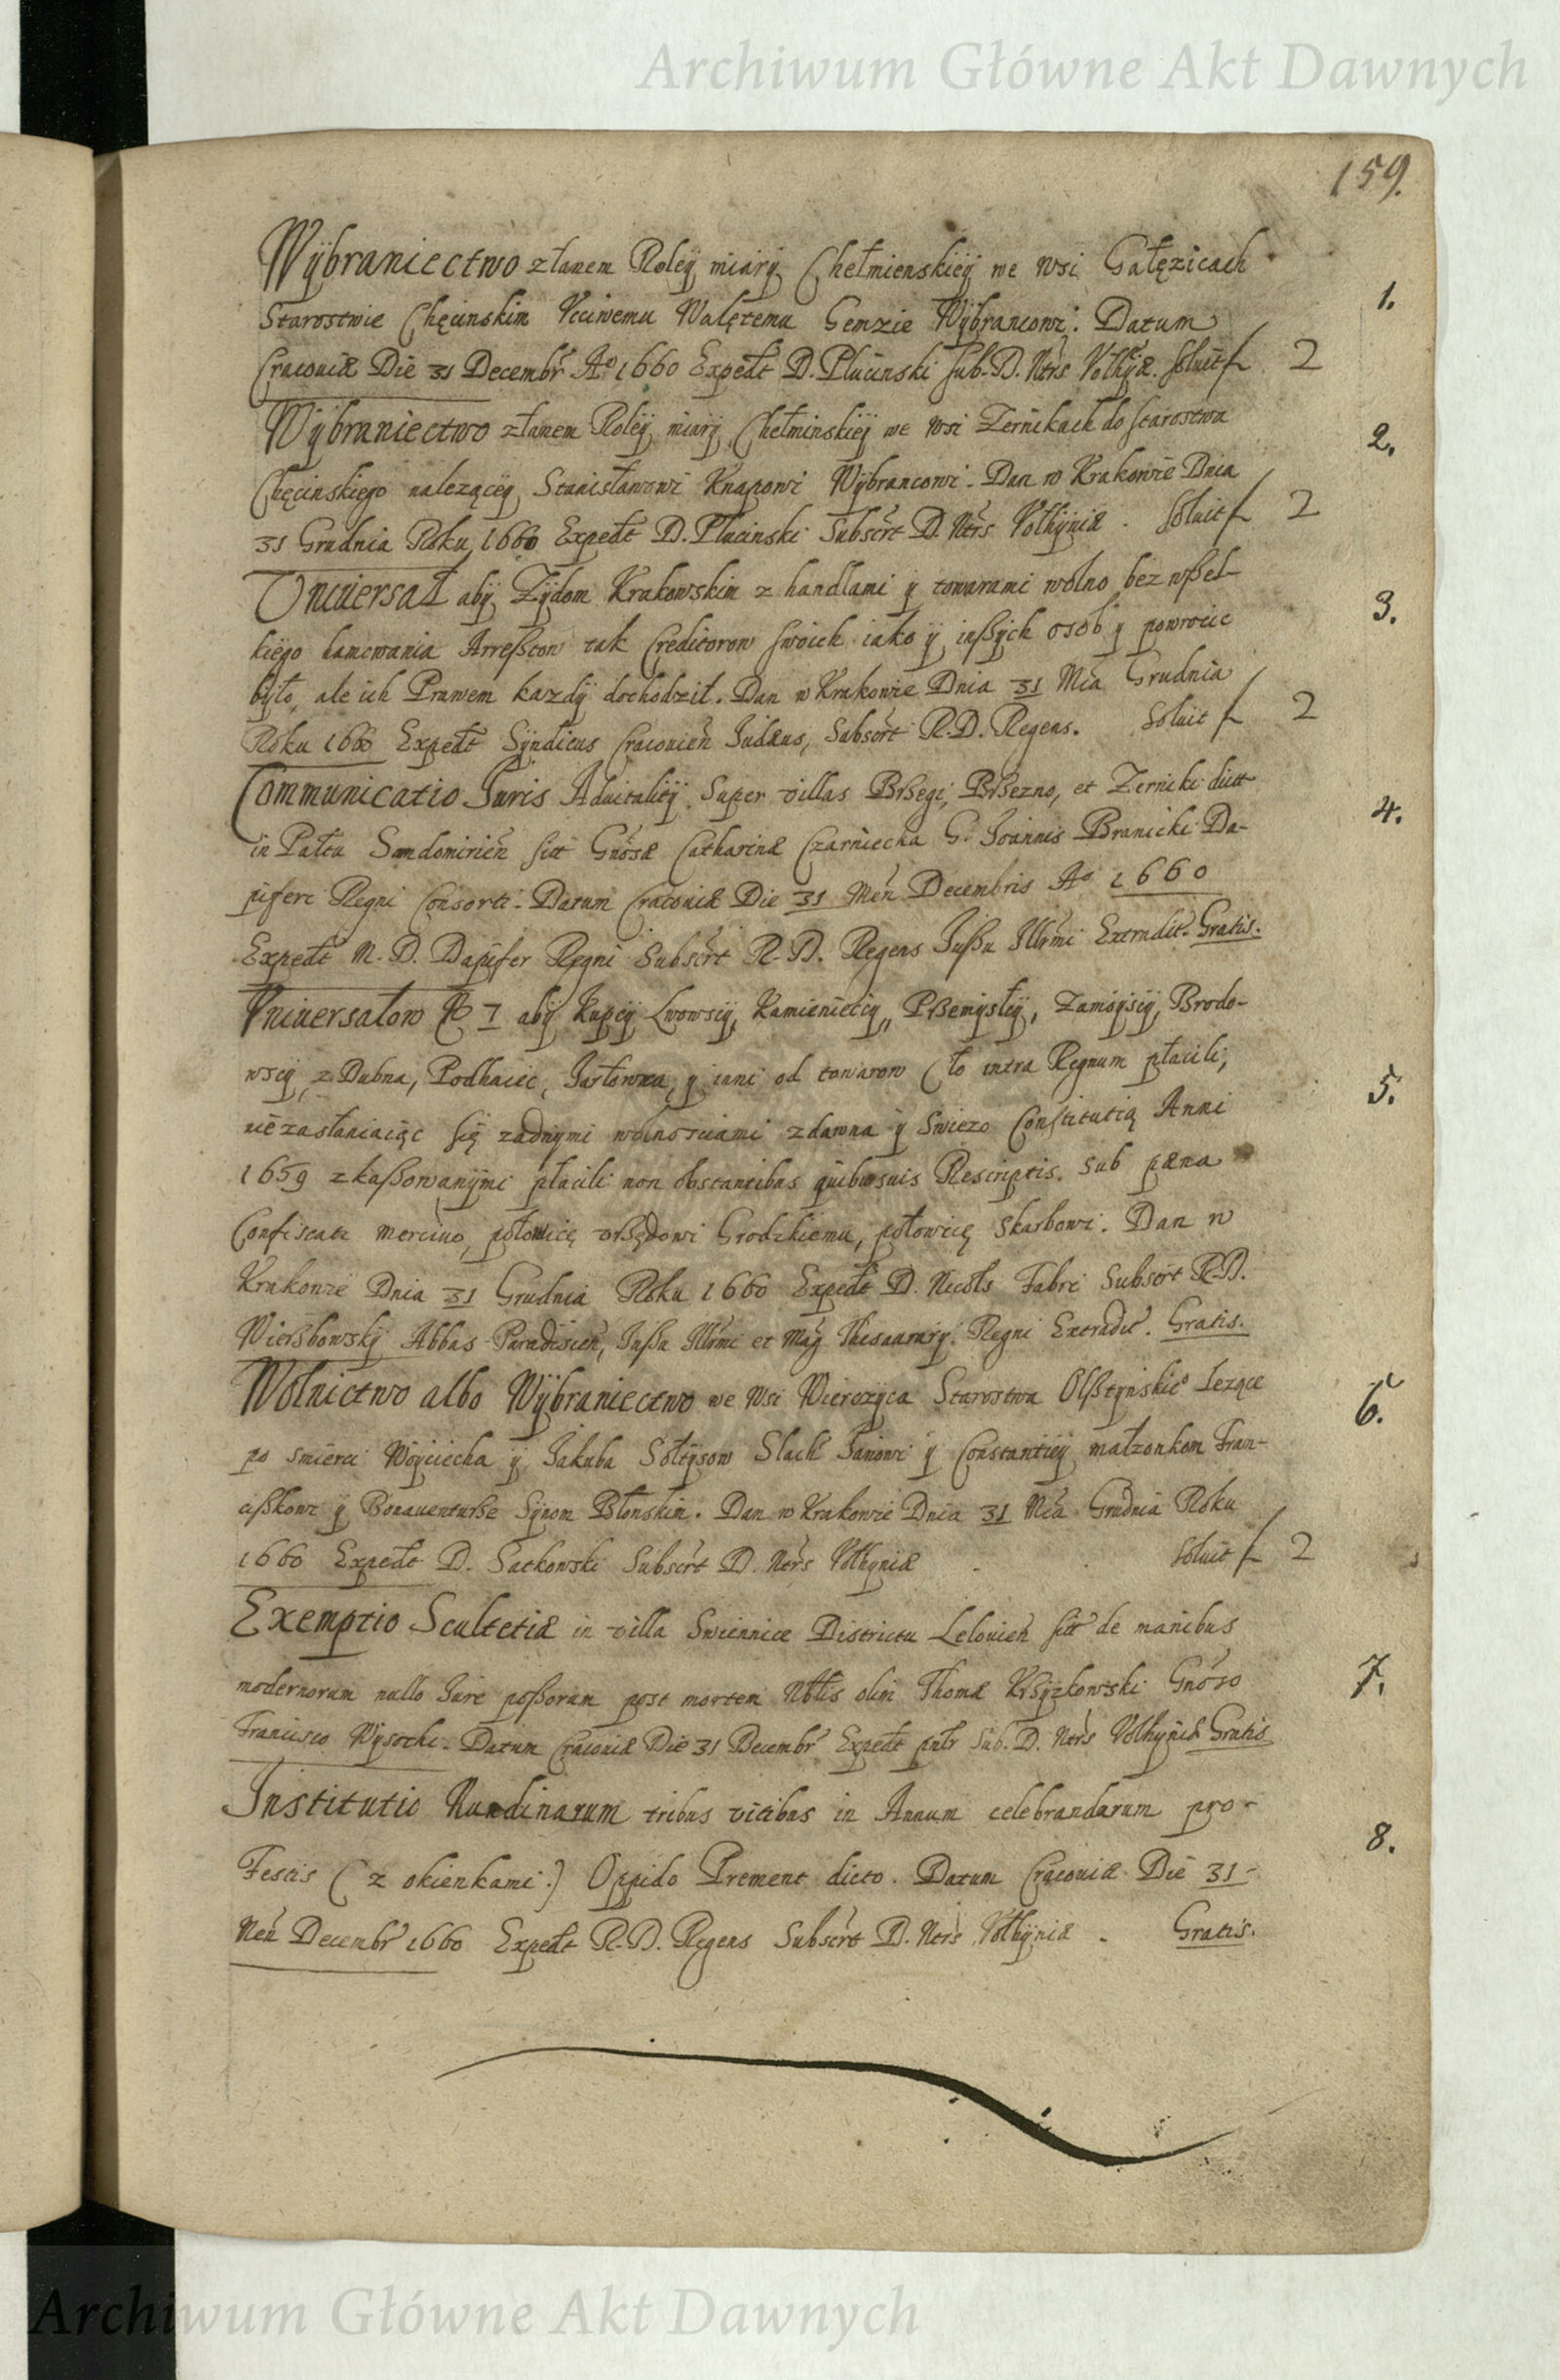 Archiwum Główne Akt Dawnych
159.
Wÿbraniectwo złanem Roleÿ miarÿ Chełmienskieÿ we wsi Gałęzicach
Starostwie Chęcinskim Vcciwemu Walętemu Gemzie Wÿbrancowi. Datum
1.
Cracouiæ Die 31 Decembr Aº 1660 Expedt D. Plucinski sub. D. Ntrs Volhÿæ. Soluit f 2
Wÿbraniectwo złanem Roleÿ miarÿ Chełminskieÿ we wsi Zernikach do starostwa
2.
Chęcinskiego nalezączeÿ Stanisławowi Knapowi Wÿbrancowi. Dan w Krakowie Dnia
31 Grudnia Roku 1660 Expedt D. Plucinski Subscrt D. Ntrs Volhÿniæ. Soluit f 2
Vniuersał abÿ Zÿdom Krakowskim z handlami ÿ towarami wolno bez wßel-
3.
kiego hamowania Arresztow tak Creditorow swoich iako ÿ inßÿch osob ÿ powrocic
bÿło, ale ich Prawem kazdÿ dochodził. Dan w Krakowie Dnia 31 Mca Grudnia
Roku 1660 Expedt Sÿndicus Cracouien Judæus, Subscrt R. D. Regens. Soluit f 2
Communicatio Juris Aduitalitÿ Super villas Brßegi, Brßezno, et Zerniki dict
4.
in Pałtu Sandomirien sitt Gnosæ Catharinæ Czarniecka G. Joannis Branicki Da-
piferi Regni Consorti. Datum Cracouiæ Die 31 Men Decembris Aº 1660
Expedt M. D. Dapifer Regni Subscrt R. D. Regens Jussu Illrmi Extradit. Gratis.
Vniuersałow No 7 abÿ Kupcÿ Lwowscÿ, Kamienieccÿ, Prßemÿslcÿ, Zamoÿscÿ, Brodo-
wscÿ, z Dubna, Podhaiec, Jarłowca, ÿ inni od towarow Cło intra Regnum płacili,
5.
niezasłaniaiąc się zadnÿmi wolnosciami zdawna ÿ swiezo Constitutią Anni
1659 zkaßowanÿmi płacili non obstantibus quibusuis Rescriptis. sub pæna
Confiscati merciuo, połowicę vrßędowi Grodzkiemu, połowicę Skarbowi. Dan w
Krakowie Dnia 31 Grudnia Roku 1660 Expedt D. Nicols Fabri Subscrt R. D.
Wierßbowskÿ Abbas Paradisien, Jussu Illrmi et Mag Thesaurarÿ Regni Extradit. Gratis.
Wolnictwo albo Wÿbraniectwo we wsi Wierczÿca Starostwa Olßtÿnskieº Lezące
6.
po smierci Woÿciecha ÿ Jakuba Sołtÿsow Slach Janowi ÿ Constantieÿ małzonkom Fran-
cißkowi ÿ Bonauenturße Sÿnom Błonskim. Dan w Krakowie Dnia 31 Mca Grudnia Roku
1660 Expedt D. Satkowski Subscrt D. Ntrs Volhÿniæ Soluit f 2
Exemptio Scultetiæ in villa Swiennice Districtu Lelouien sitt de manibus
7.
modernorum nullo Jure possorum post mortem Nblis olim Thomæ Krßÿzkowski Gnoso
Francisco Wÿsocki. Datum Cracouiæ Die 31 Decembr Expedt Sub. D. Ntrs Volhÿniæ Gratis
Institutio Nundinarum tribus vicibus in Annum celebrandarum pro-
8.
Festis (z okienkami.) Oppido Prement dicto. Datum Cracouiæ Die 31-
Men Decembr 1660 Expedt R. D. Regens Subscrt D. Ntrs Volhÿniæ. Gratis.
Archiwum Główne Akt Dawnych